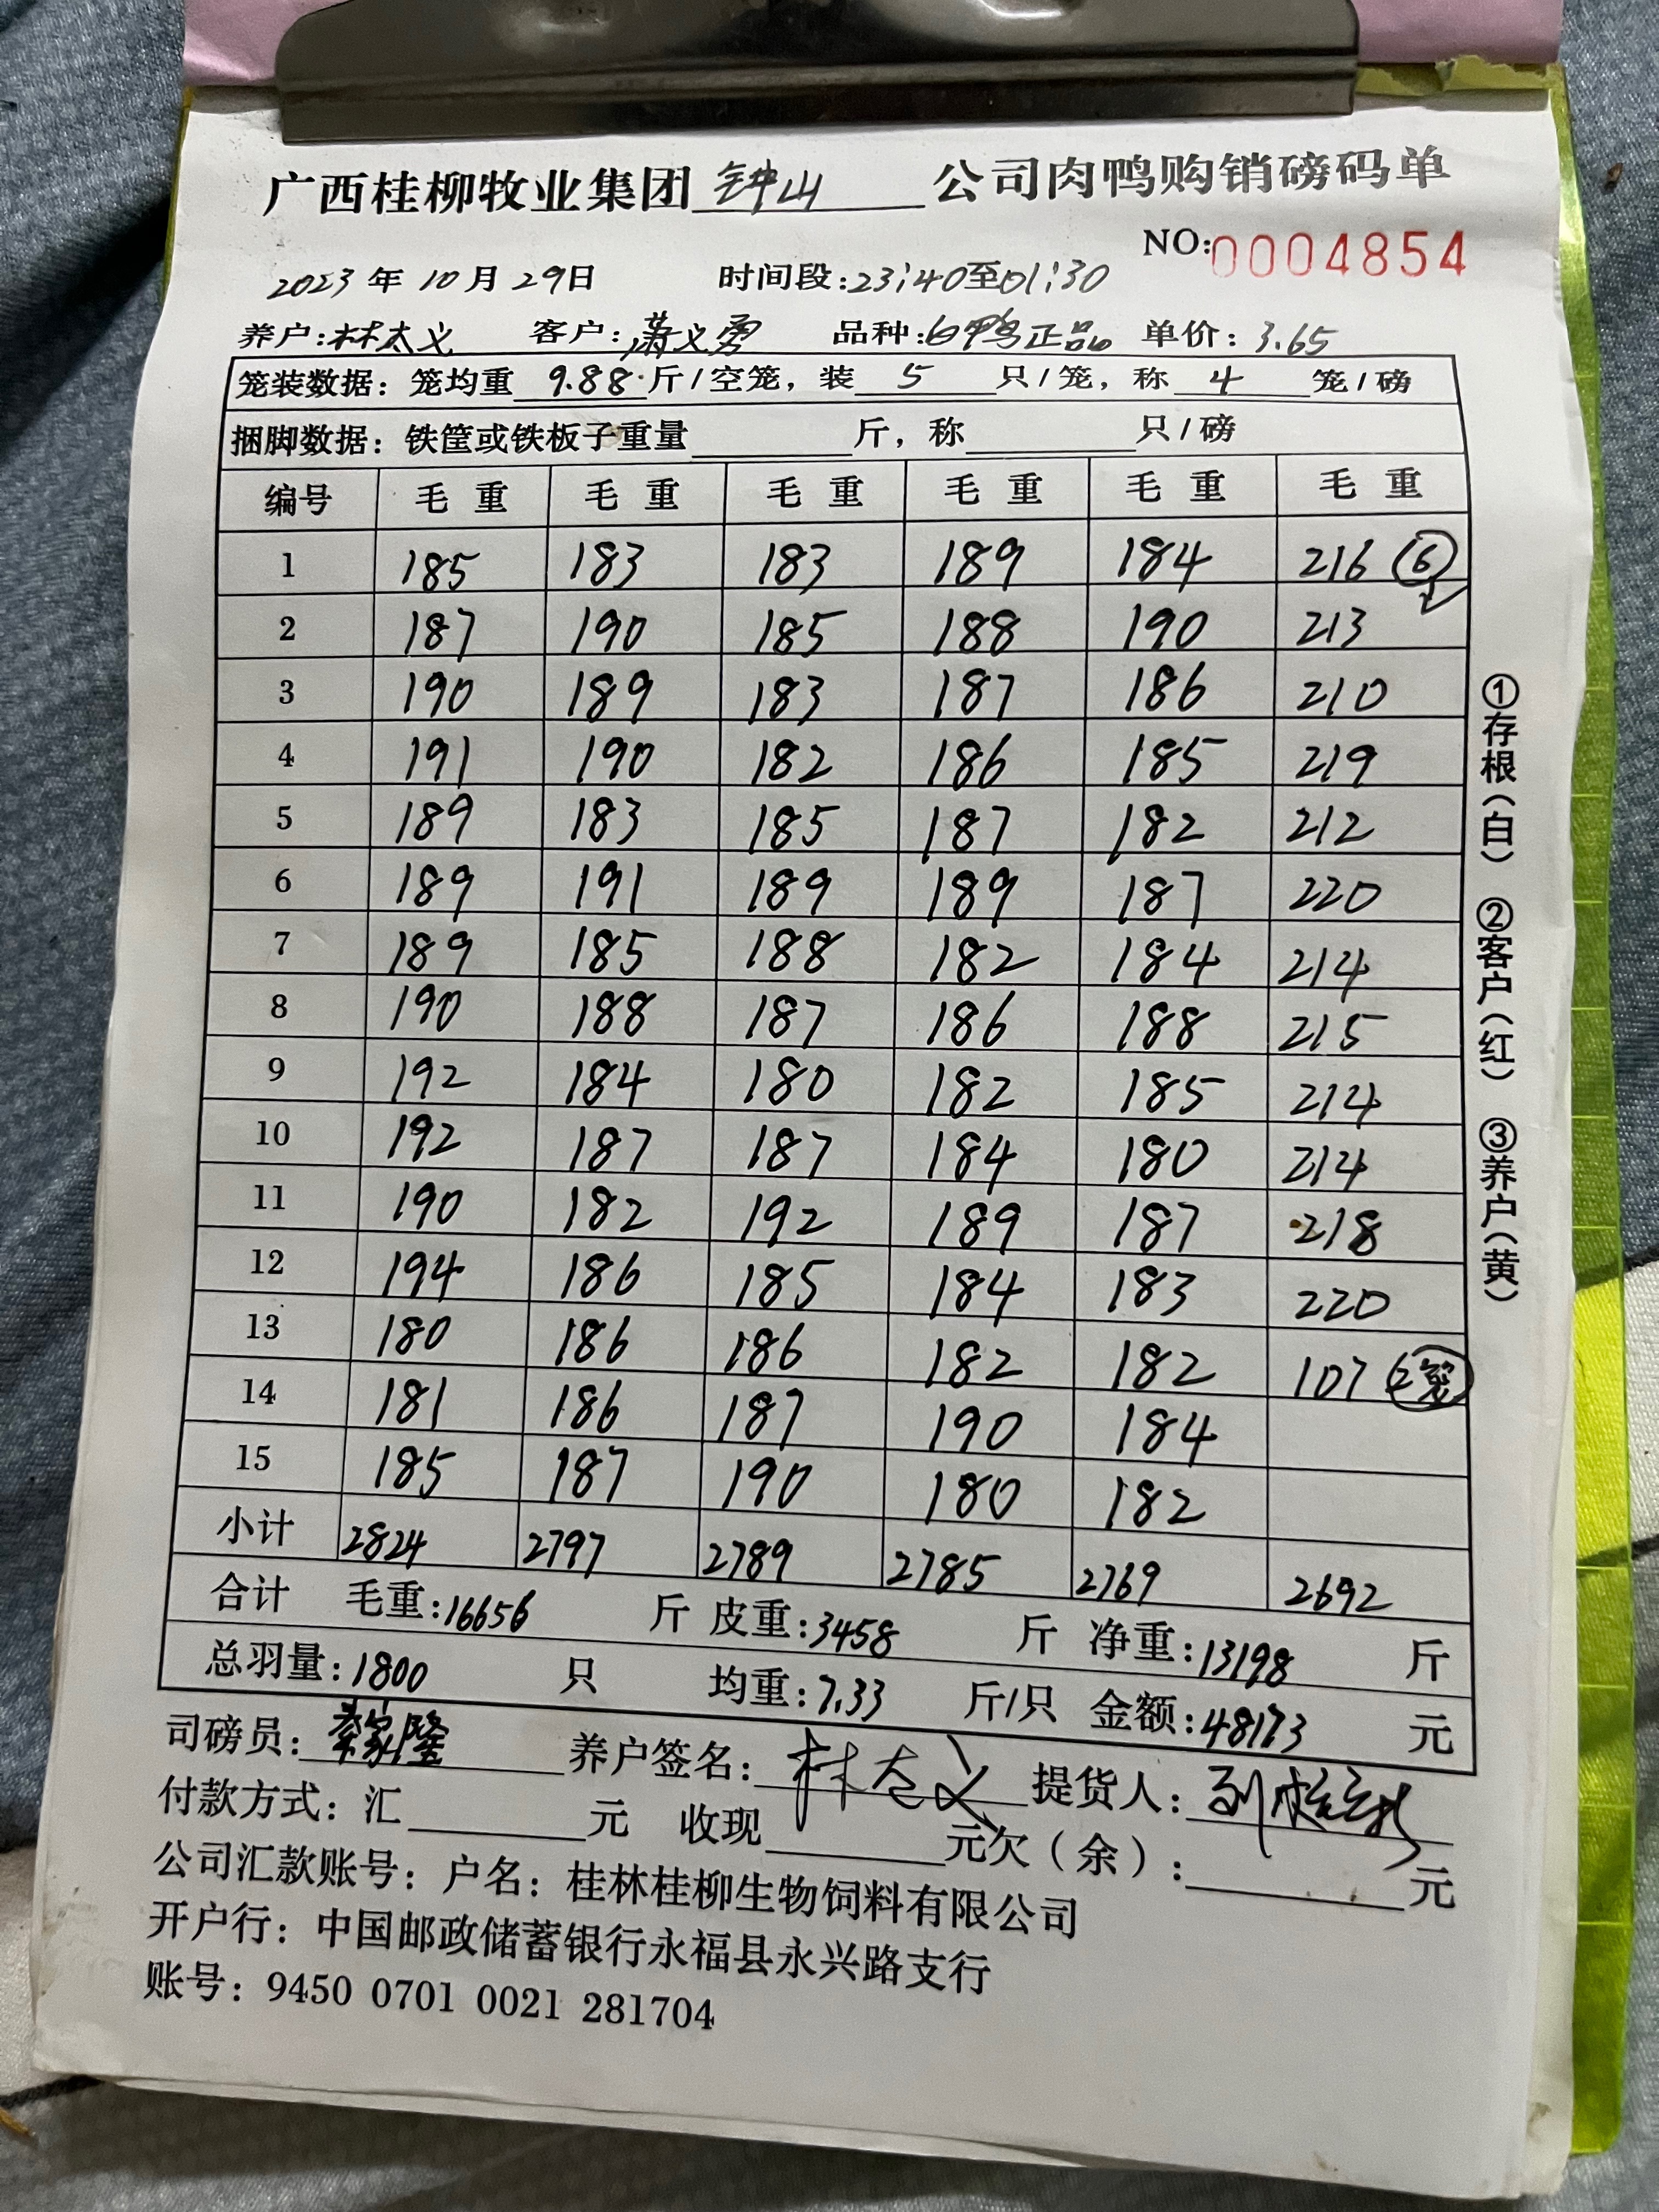 广西桂柳牧业集团 钟山 公司肉鸭购销磅码单
NO:0004854
2023年10月29日 时间段:23:40至01:30
养户:林太义 客户:萧义勇 品种:白鸭正品 单价:3.65
笼装数据:笼均重 9.88 斤/空笼,装 5 只/笼,称 4 笼/磅
捆脚数据:铁筐或铁板子重量 斤,称 只/磅
编号 毛重 毛重 毛重 毛重 毛重 毛重
1 185 183 183 189 184 216 ⑥
2 187 190 185 188 190 213
3 190 189 183 187 186 210
4 191 190 182 186 185 219
5 189 183 185 187 182 212
6 189 191 189 189 187 220
7 189 185 188 182 184 214
8 190 188 187 186 188 215
9 192 184 180 182 185 214
10 192 187 187 184 180 214
11 190 182 192 189 187 218
12 194 186 185 184 183 220
13 180 186 186 182 182 107 2笼
14 181 186 187 190 184
15 185 187 190 180 182
小计 2824 2797 2789 2785 2769 2692
合计 毛重:16656 斤 皮重:3458 斤 净重:13198 斤
总羽量:1800 只 均重:7.33 斤/只 金额:48173 元
司磅员: 家隆 养户签名:林太义 提货人:
付款方式:汇 元 收现 元欠(余): 元
公司汇款账号:户名:桂林桂柳生物饲料有限公司
开户行:中国邮政储蓄银行永福县永兴路支行
账号:9450 0701 0021 281704
①存根(白) ②客户(红) ③养户(黄)